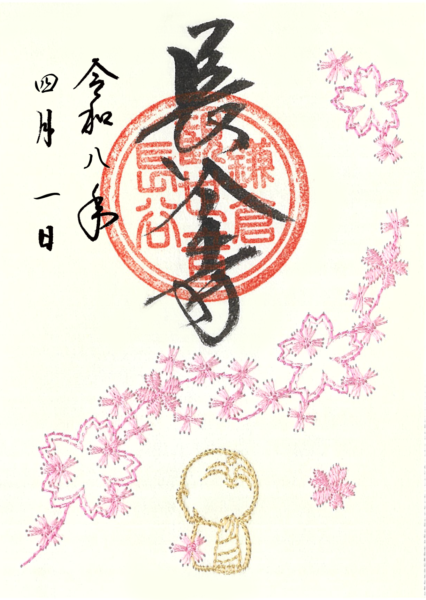 長谷寺
鎌倉
觀世音
長谷
令和八年
四月一日